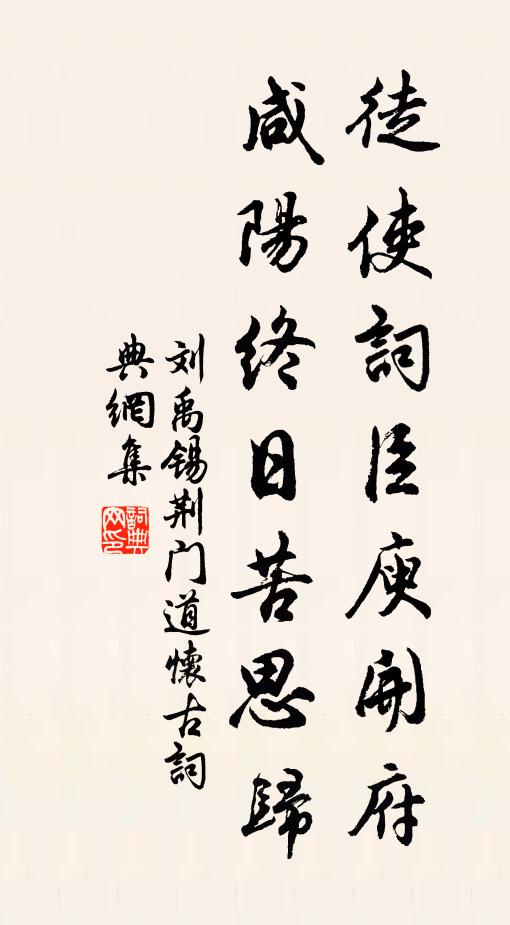 徒使詞臣庾開府
咸陽終日苦思歸
刘禹锡荆门道懷古詞
典網集
詞典网印